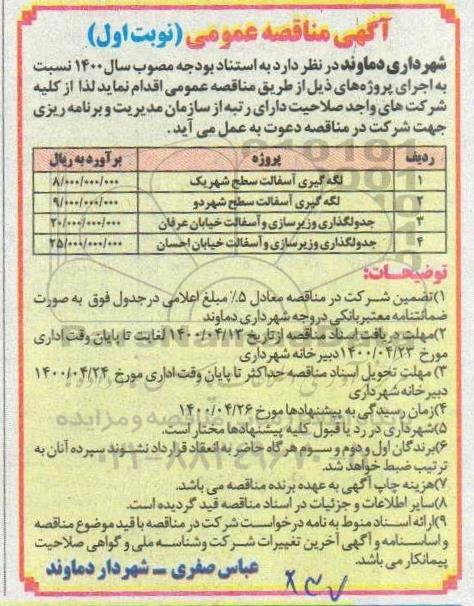 آگهی مناقصه عمومی (نوبت اول)
شهرداری دماوند در نظر دارد به استناد بودجه مصوب سال ۱۴۰۰ نسبت
به اجرای پروژه‌های ذیل از طریق مناقصه عمومی اقدام نماید لذا از کلیه
شرکت های واجد صلاحیت دارای رتبه از سازمان مدیریت و برنامه ریزی
جهت شرکت در مناقصه دعوت به عمل می آید.
ردیف پروژه برآورد به ریال
۱ لکه گیری آسفالت سطح شهر یک ۸/۰۰۰/۰۰۰/۰۰۰
۲ لکه گیری آسفالت سطح شهر دو ۹/۰۰۰/۰۰۰/۰۰۰
۳ جدولگذاری و زیرسازی و آسفالت خیابان عرفان ۲۰/۰۰۰/۰۰۰/۰۰۰
۴ جدولگذاری و زیرسازی و آسفالت خیابان احسان ۲۵/۰۰۰/۰۰۰/۰۰۰
توضیحات:
۱)تضمین شرکت در مناقصه معادل ۵٪ مبلغ اعلامی در جدول فوق به صورت
ضمانتنامه معتبر بانکی در وجه شهرداری دماوند
۲)مهلت دریافت اسناد مناقصه از تاریخ ۱۴۰۰/۰۴/۱۳ لغایت تا پایان وقت اداری
مورخ ۱۴۰۰/۰۴/۲۳ دبیرخانه شهرداری
۳) مهلت تحویل اسناد مناقصه حداکثر تا پایان وقت اداری مورخ ۱۴۰۰/۰۴/۲۴
دبیرخانه شهرداری
۴)زمان رسیدگی به پیشنهادها مورخ ۱۴۰۰/۰۴/۲۶
۵)شهرداری در رد یا قبول کلیه پیشنهادها مختار است.
۶)برندگان اول و دوم و سوم هرگاه حاضر به انعقاد قرارداد نشوند سپرده آنان به
ترتیب ضبط خواهد شد.
۷)هزینه چاپ آگهی به عهده برنده مناقصه می باشد.
۸)سایر اطلاعات و جزئیات در اسناد مناقصه قید گردیده است.
۹)ارائه اسناد منوط به نامه درخواست شرکت در مناقصه با قید موضوع مناقصه
و اساسنامه و آگهی آخرین تغییرات شرکت و شناسه ملی و گواهی صلاحیت
پیمانکار می باشد.
عباس صفری – شهردار دماوند